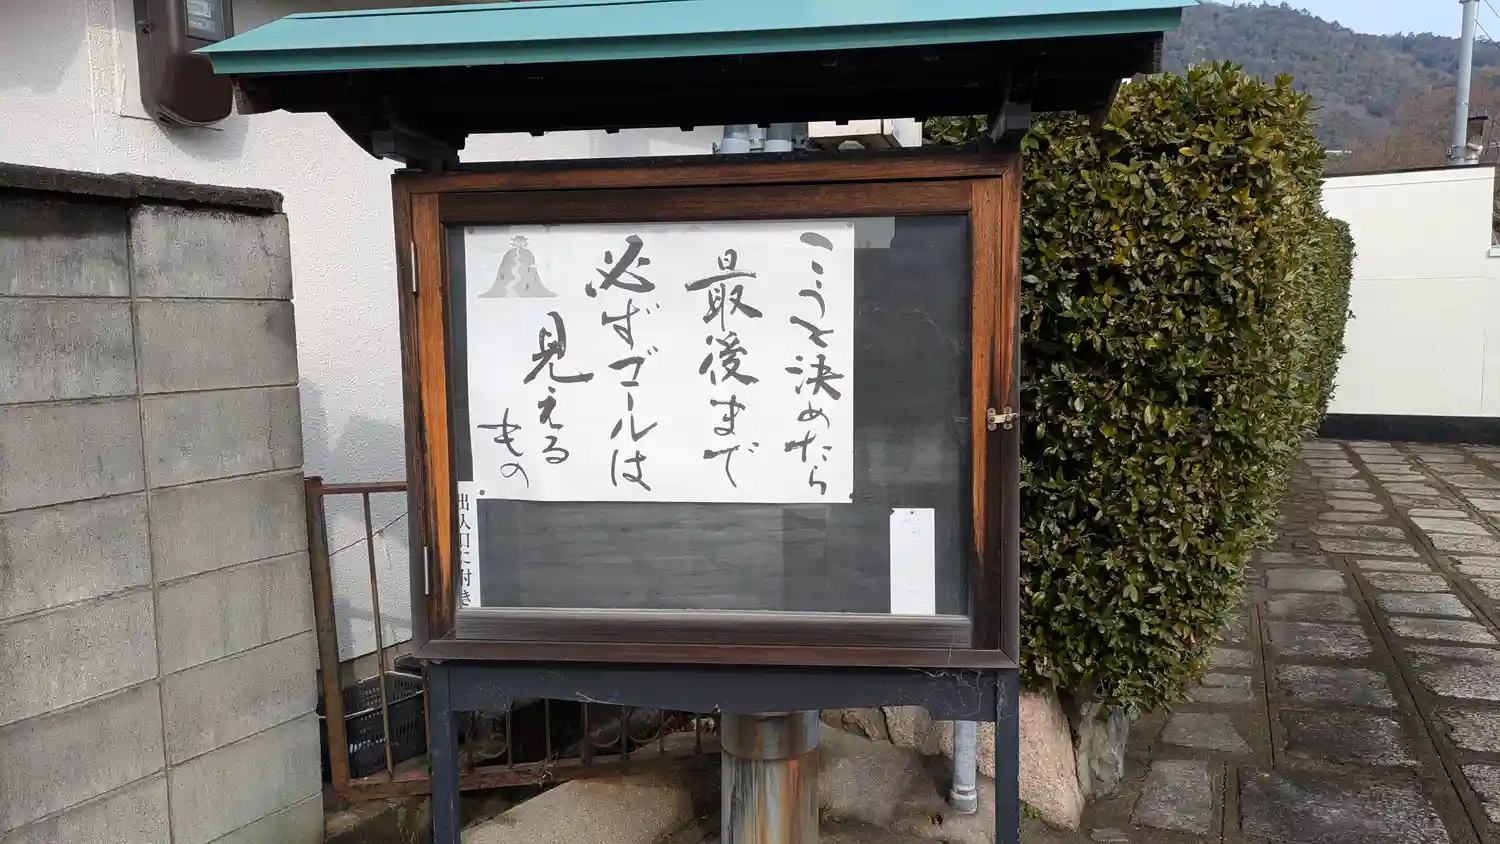 こうと決めたら
最後まで
必ずゴールは
見える
もの
出入口に付き